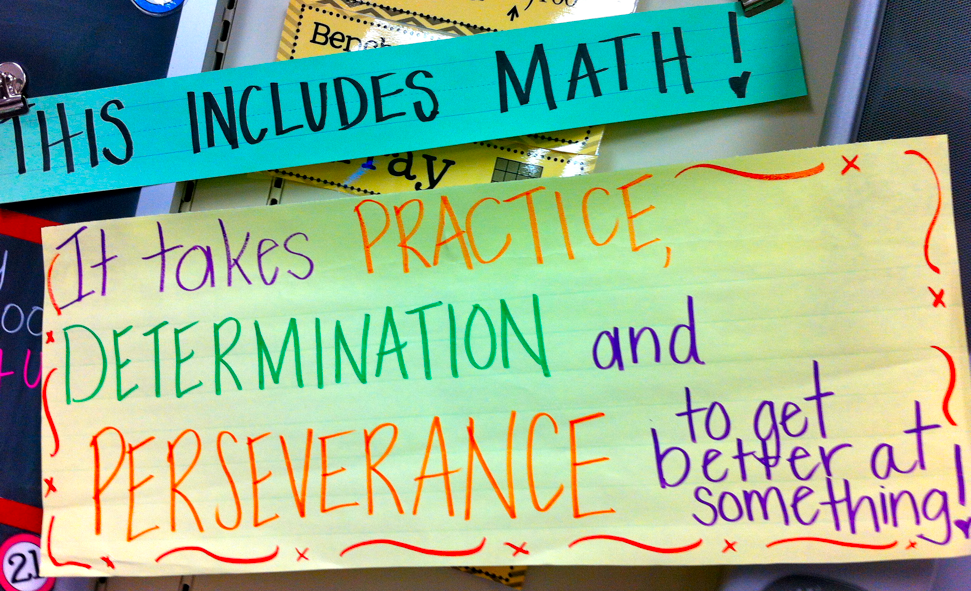 THIS INCLUDES MATH!
It takes PRACTICE,
DETERMINATION and
PERSEVERANCE to get
better at
something!
21